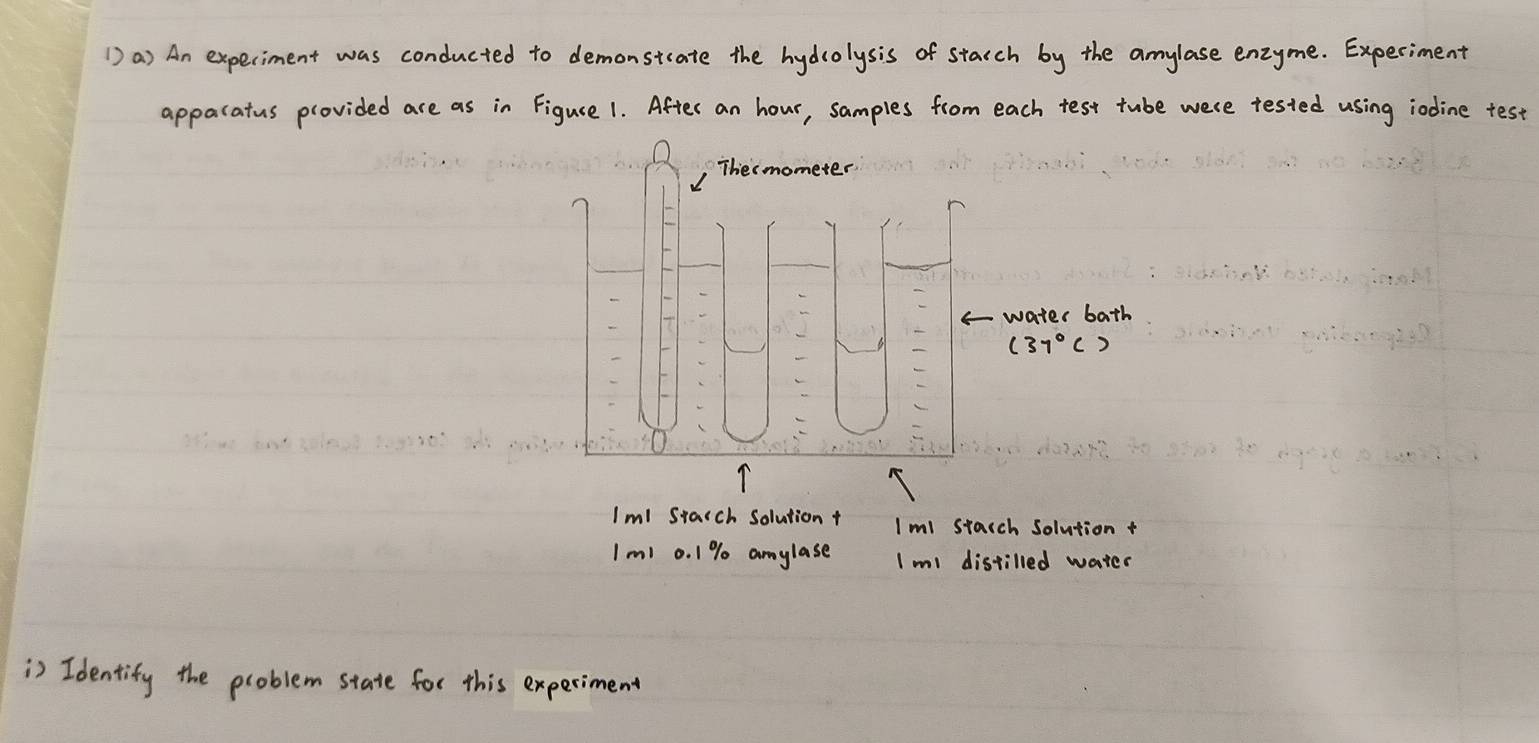 1) a) An experiment was conducted to demonstrate the hydrolysis of starch by the amylase enzyme. Experiment
apparatus provided are as in Figure 1. After an hour, samples from each test tube were tested using iodine test
Thermometer
← water bath
(37°C)
1 ml starch solution +
1 ml 0.1% amylase
1 ml starch solution +
1 ml distilled water
i) Identify the problem state for this experiment